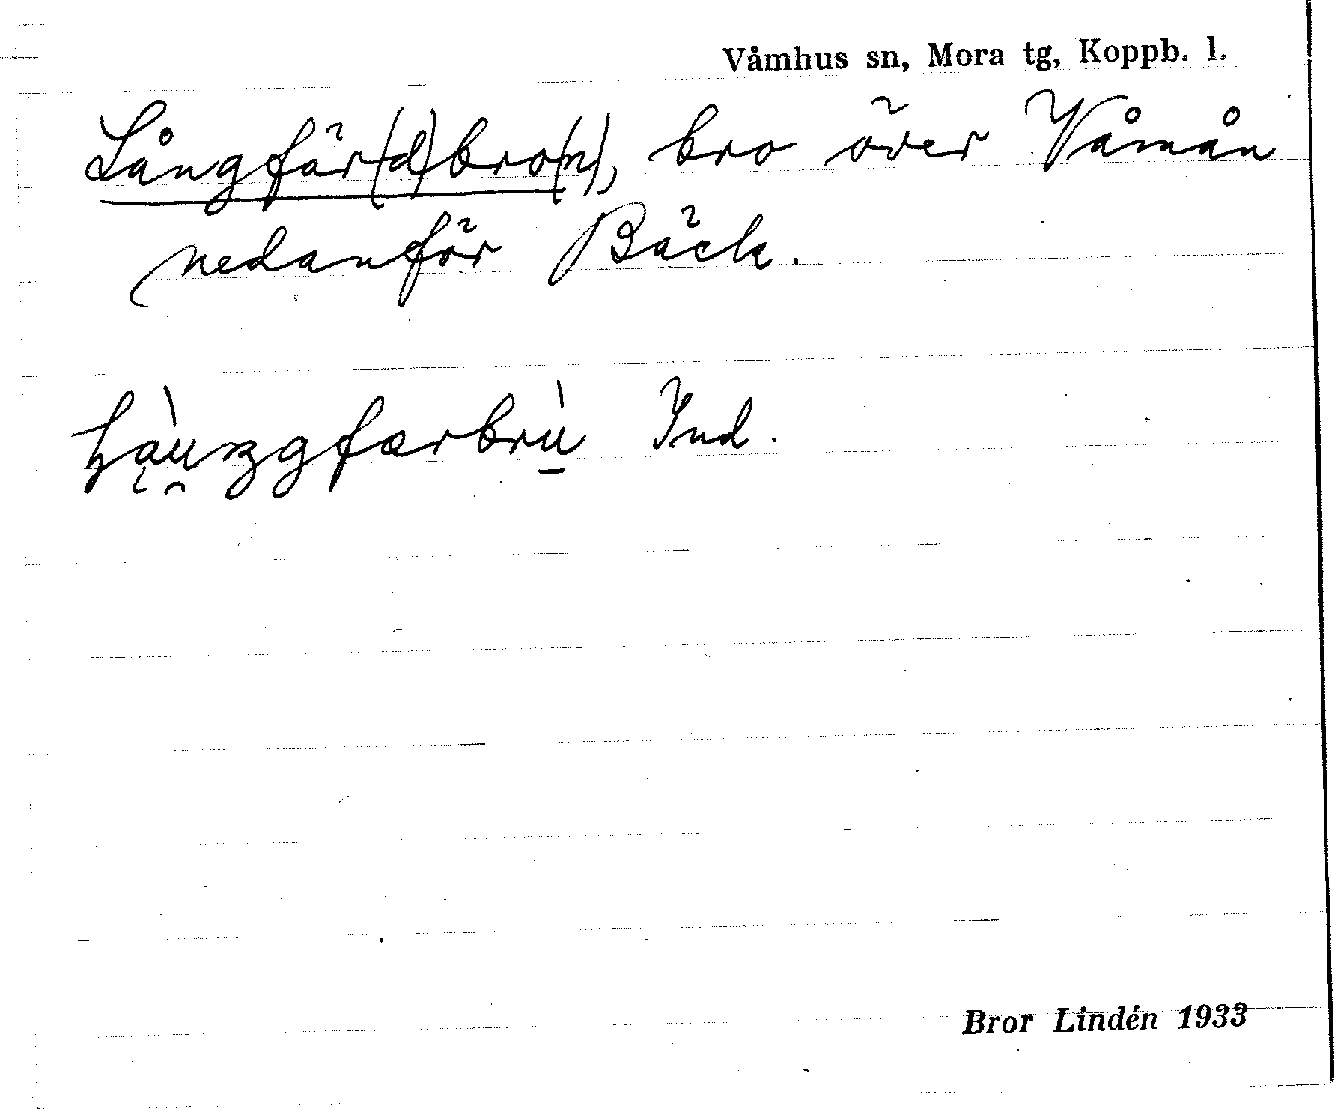 Våmhus sn, Mora tg, Koppb. l.
Långfär(d)bro(n), bro över Våmån
nedanför Bäck.
Ind.
Bror Lindén 1933